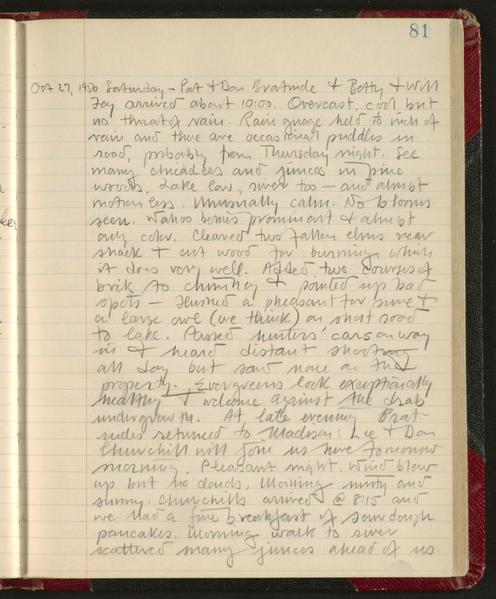 81
Oct 27, 1956 Saturday - Pat & Don Bratrude & Betty & Will
Fey arrived about 10:00. Overcast, cool, but
no threat of rain. Rain guage held 1/2 inch of
rain and there are occasional puddles in
road, probably from Thursday night. See
many chicadees and juncos in pine
woods. Lake low, river too - and almost
motionless. Unusually calm. No blooms
seen. Wahoo berries prominent & almost
only color. Cleared two fallen elms near
shack & cut wood for burning which
it does very well. Added two courses of
brick to chimney & pointed up bad
spots - Flushed a pheasant for sure &
a large owl (we think) on short road
to lake. Passed hunters' cars on way
in & heard distant shooting
all day but saw none on the
property. Evergreens look exceptionally
healthy & welcome against the drab
undergrowth. At late evening Brat-
rudes returned to Madison: Lee & Don
Churchill will join us here tomorrow
morning. Pleasant night. Wind blew
up but no clouds. Morning misty and
sunny. Churchills arrived @ 8:15 and
we had a fine breakfast of sourdough
pancakes. Morning walk to river
scattered many juncos ahead of us.